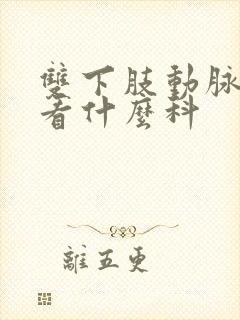 雙下肢動脈
看什麼科
離五更